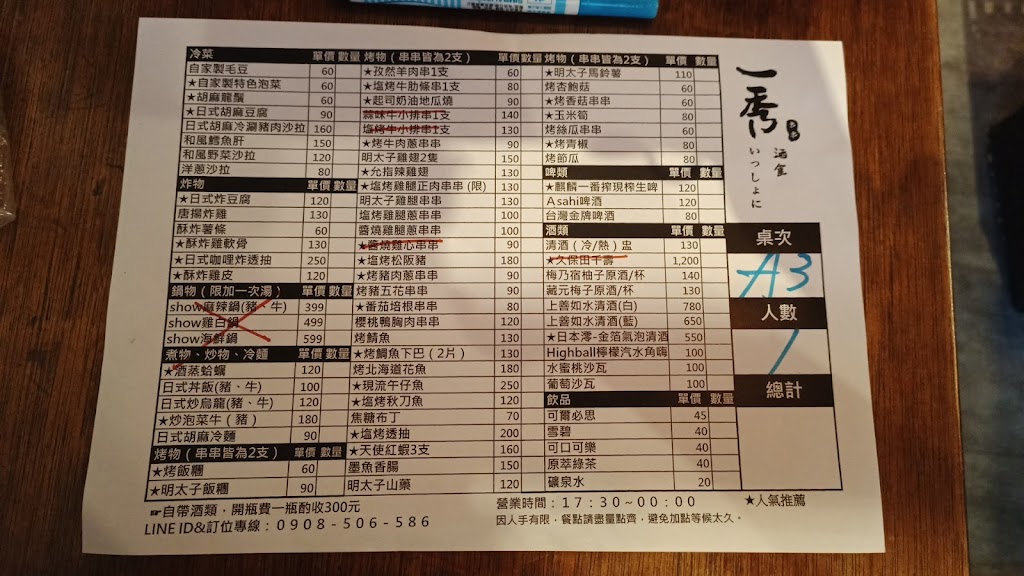 冷菜 單價 數量
自家製毛豆 60
★自家製特色泡菜 60
★胡麻龍鬚 60
★日式胡麻豆腐 90
日式胡麻冷涮豬肉沙拉 160
和風鱈魚肝 150
和風野菜沙拉 120
洋蔥沙拉 80
炸物 單價 數量
★日式炸豆腐 120
唐揚炸雞 130
酥炸薯條 60
★酥炸雞軟骨 130
★日式咖哩炸透抽 250
★酥炸雞皮 120
鍋物（限加一次湯） 單價 數量
show麻辣鍋(豬、牛) 399
show雞白鍋 499
show海鮮鍋 599
煮物、炒物、冷麵 單價 數量
★酒蒸蛤蠣 120
日式丼飯(豬、牛) 100
日式炒烏龍(豬、牛) 120
★炒泡菜牛（豬） 180
日式胡麻冷麵 90
烤物（串串皆為2支） 單價 數量
★烤飯糰 60
★明太子飯糰 90
烤物（串串皆為2支） 單價 數量
★孜然羊肉串1支 60
★塩烤牛肋條串1支 80
★起司奶油地瓜燒 90
蒜味牛小排串1支 140
塩烤牛小排串1支 130
★烤牛肉蔥串串 90
明太子雞翅2隻 150
★允指辣雞翅 130
★塩烤雞腿正肉串串(限) 130
明太子雞腿串串 130
塩烤雞腿蔥串串 100
醬燒雞腿蔥串串 100
★醬燒雞心串串 90
★塩烤松阪豬 180
★烤豬肉蔥串串 90
烤豬五花串串 90
★番茄培根串串 80
櫻桃鴨胸肉串串 120
烤鯖魚 130
★烤鯛魚下巴（2片） 130
烤北海道花魚 180
★現流午仔魚 250
★塩烤秋刀魚 120
焦糖布丁 70
★塩烤透抽 200
★天使紅蝦3支 160
墨魚香腸 150
明太子山藥 120
烤物（串串皆為2支） 單價 數量
★明太子馬鈴薯 110
烤杏鮑菇 60
★烤香菇串串 60
★玉米筍 80
烤絲瓜串串 60
★烤青椒 80
烤節瓜 80
啤類 單價 數量
★麒麟一番搾現榨生啤 120
Asahi啤酒 120
台灣金牌啤酒 80
酒類 單價 數量
清酒（冷/熱）盅 130
★久保田千壽 1,200
梅乃宿柚子原酒/杯 140
藏元梅子原酒/杯 130
上善如水清酒(白) 780
上善如水清酒(藍) 650
★日本澪-金箔氣泡清酒 550
Highball檸檬汽水角嗨 100
水蜜桃沙瓦 100
葡萄沙瓦 100
飲品 單價 數量
可爾必思 45
雪碧 40
可口可樂 40
原萃綠茶 40
礦泉水 20
一秀
酒食
いっしょに
桌次
A3
人數
1
總計
☛自帶酒類，開瓶費一瓶酌收300元
LINE ID&訂位專線：0908-506-586
營業時間：17:30~00:00
★人氣推薦
因人手有限，餐點請盡量點齊，避免加點等候太久。